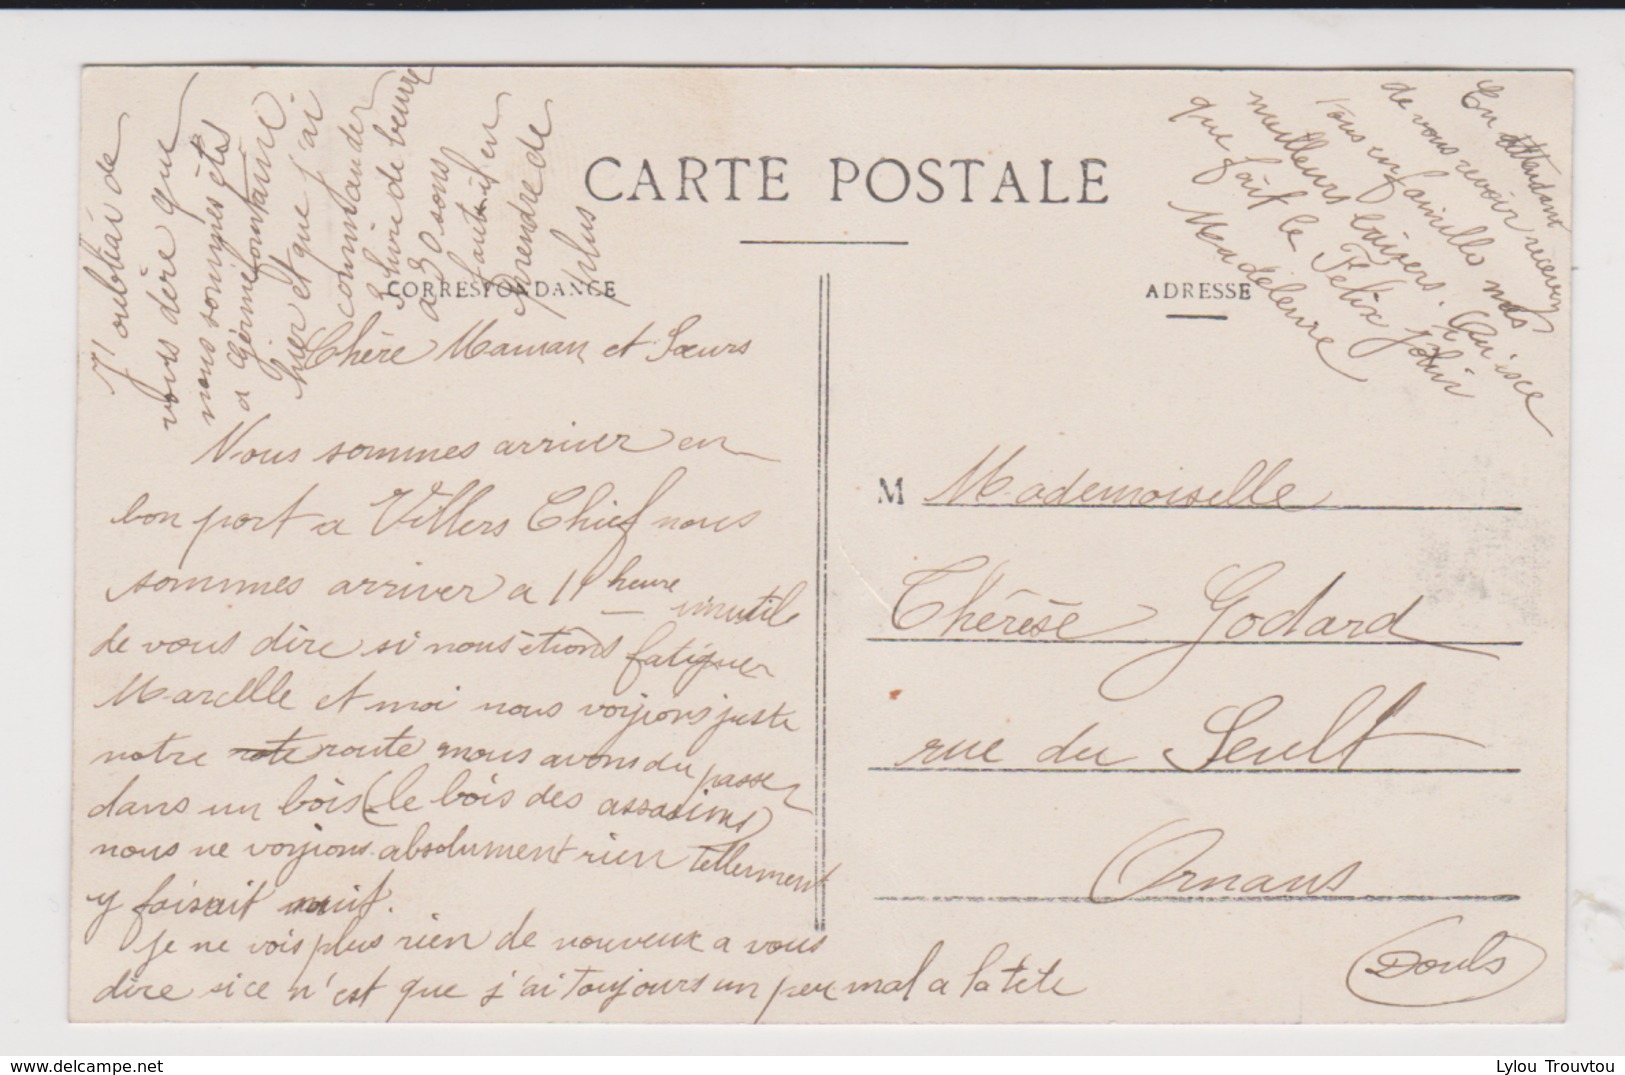 CARTE POSTALE
CORRESPONDANCE
ADRESSE
Chère Maman et Sœurs
Nous sommes arriver en
bon port a Villers Chief nous
sommes arriver a 11 heure inutile
de vous dire si nous étions fatiguer
Marcelle et moi nous voyions juste
notre route nous avons du passer
dans un bois (le bois des assasins)
nous ne voyions absolument rien tellement
y faisait nuit.
je ne vois plus rien de nouveux a vous
dire si ce n'est que j'ai toujours un peu mal a la tête
En attendant
de vous revoir recevez
tous en famille nos
meilleurs baisers.
que fait le Félix
Madeleine
J'oubliai de
vous dire que
nous sommes étés
a Germéfontaine
hier et que j'ai
commander
3 livre de beurre
a 30 sous
faut-il en
prendre de
plus
M Mademoiselle
Thérèse Godard
rue du Seult
Ornans
Doubs
Lylou Trouvtou
www.delcampe.net